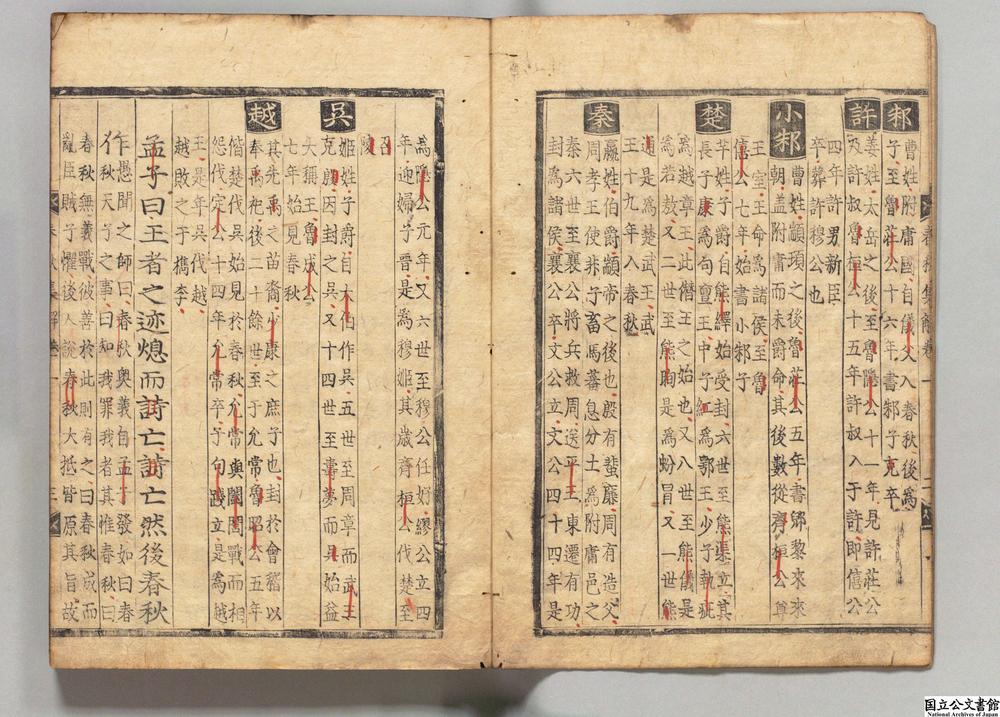 邾
曹姓附庸國自儀父入春秋後爲
子至魯莊公十六年書邾子克卒
許
姜姓太岳之後至魯隱公十一年見許莊公
及許叔魯桓公十五年許叔入于許即僖公
四年許男新臣
卒葬許穆公也
小邾
曹姓顓頊之後魯莊公五年書郳黎來來
朝蓋附庸而未爵命其後數從齊桓公尊
王室王命爲諸侯至魯
僖公七年始書小邾子
楚
芉姓子爵自熊繹始受封六世至熊渠立其
長子康爲句亶王中子紅爲鄂王少子執疵
爲越章王此僭王之始也又八世至熊儀是
爲若敖又二世至熊眴是爲蚡冒又一世熊
通是爲楚武王武
王十九年入春秋
秦
嬴姓伯爵顓帝之後也殷有蜚廉周有造父
周孝王使非子畜馬蕃息分土爲附庸邑之
秦六世至襄公將兵救周送平王東遷有功
封爲諸侯襄公卒文公立文公四十四年是
爲隱公元年又六世至穆公任好繆公立四
年迎婦于晉是爲穆姬其歲齊桓公伐楚至
召
陵
吳
姬姓子爵自大伯作吳五世至周章而武王
克殷因封之吳又十四世至壽夢而吳始益
大稱王魯成公
七年始見春秋
越
其先禹之苗裔少康之庶子也封於會稽以
奉禹祀後二十餘世至于允常魯昭公五年
偕楚伐吳始見於春秋允常與闔閭戰而相
怨伐定公十四年允常卒子句踐立是爲越
王是年吳伐越
越敗之于檇李
孟子曰王者之迹熄而詩亡詩亡然後春秋
作
愚聞之師曰春秋奧義自孟子發如曰春
秋天子之事曰知我罪我者其惟春秋曰
春秋無義戰彼善於此則有之曰春秋成而
亂臣賊子懼後人說春秋大抵皆原其旨故
国立公文書館
National Archives of Japan